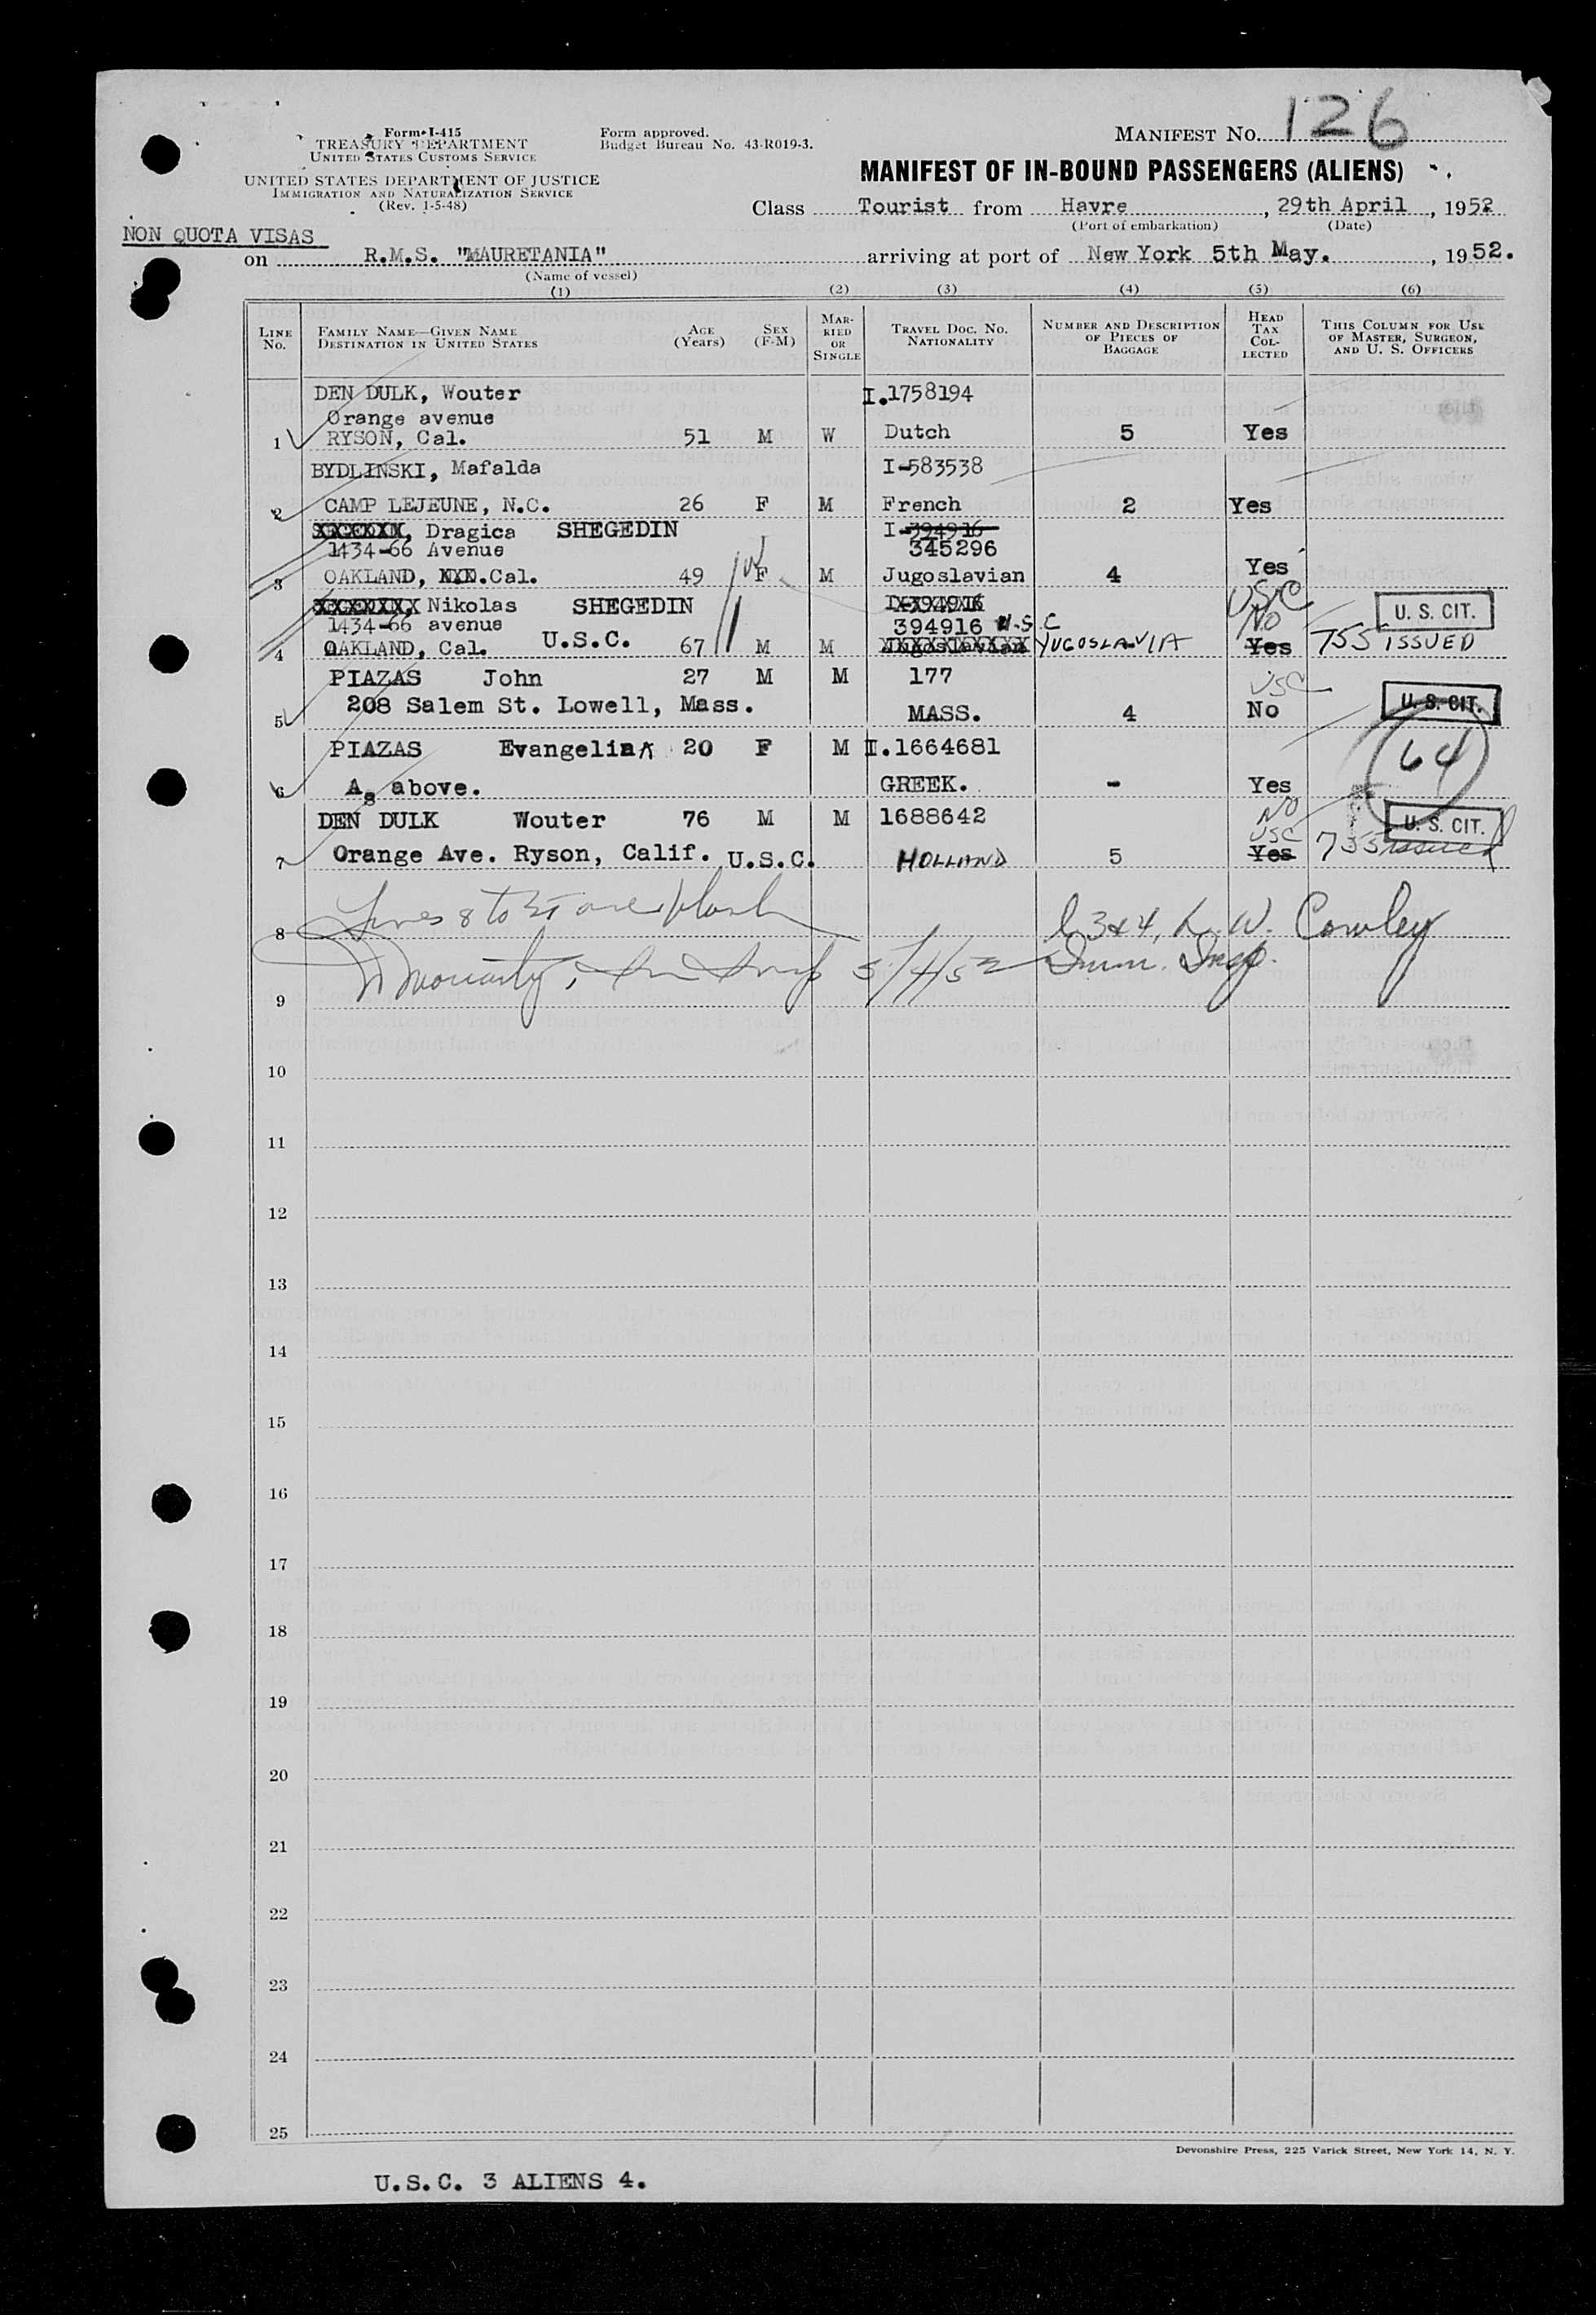 Form I-415
TREASURY DEPARTMENT
UNITED STATES CUSTOMS SERVICE
UNITED STATES DEPARTMENT OF JUSTICE
IMMIGRATION AND NATURALIZATION SERVICE
(Rev. 1-5-48)
Form approved.
Budget Bureau No. 43-R019-3.
MANIFEST No. 126
MANIFEST OF IN-BOUND PASSENGERS (ALIENS)
Class Tourist from Havre, 29th April, 1952
(Port of embarkation) (Date)
NON QUOTA VISAS
on R.M.S. "MAURETANIA" arriving at port of New York 5th May., 1952.
(Name of vessel)
(1) (2) (3) (4) (5) (6)
LINE No. FAMILY NAME—GIVEN NAME DESTINATION IN UNITED STATES AGE (Years) SEX (F-M) MARRIED OR SINGLE TRAVEL DOC. No. NATIONALITY NUMBER AND DESCRIPTION OF PIECES OF BAGGAGE HEAD TAX COLLECTED THIS COLUMN FOR USE OF MASTER, SURGEON, AND U. S. OFFICERS
DEN DULK, Wouter I.1758194
Orange avenue
1 RYSON, Cal. 51 M W Dutch 5 Yes
BYDLINSKI, Mafalda I-583538
2 CAMP LEJEUNE, N.C. 26 F M French 2 Yes
Dragica SHEGEDIN I-394916
1434-66 Avenue 345296
3 OAKLAND, Cal. 49 F M Jugoslavian 4 Yes
Nikolas SHEGEDIN I-394916 USC U. S. CIT.
1434-66 avenue 394916 U.S.C NO
4 OAKLAND, Cal. U.S.C. 67 M M Jugoslavian YUGOSLAVIA Yes 755 ISSUED
PIAZAS John 27 M M 177 USC
5 208 Salem St. Lowell, Mass. MASS. 4 No U. S. CIT.
PIAZAS Evangelia 20 F M I.1664681 64
6 As above. GREEK. - Yes
DEN DULK Wouter 76 M M 1688642 NO USC U. S. CIT.
7 Orange Ave. Ryson, Calif. U.S.C. HOLLAND 5 Yes 755 issued
8 Lines 8 to 25 are blank L 3 & 4, L. W. Cowley
Moriarty, Imm Insp 5/4/52 Imm. Insp.
9
10
11
12
13
14
15
16
17
18
19
20
21
22
23
24
25
Devonshire Press, 225 Varick Street, New York 14, N. Y.
U.S.C. 3 ALIENS 4.